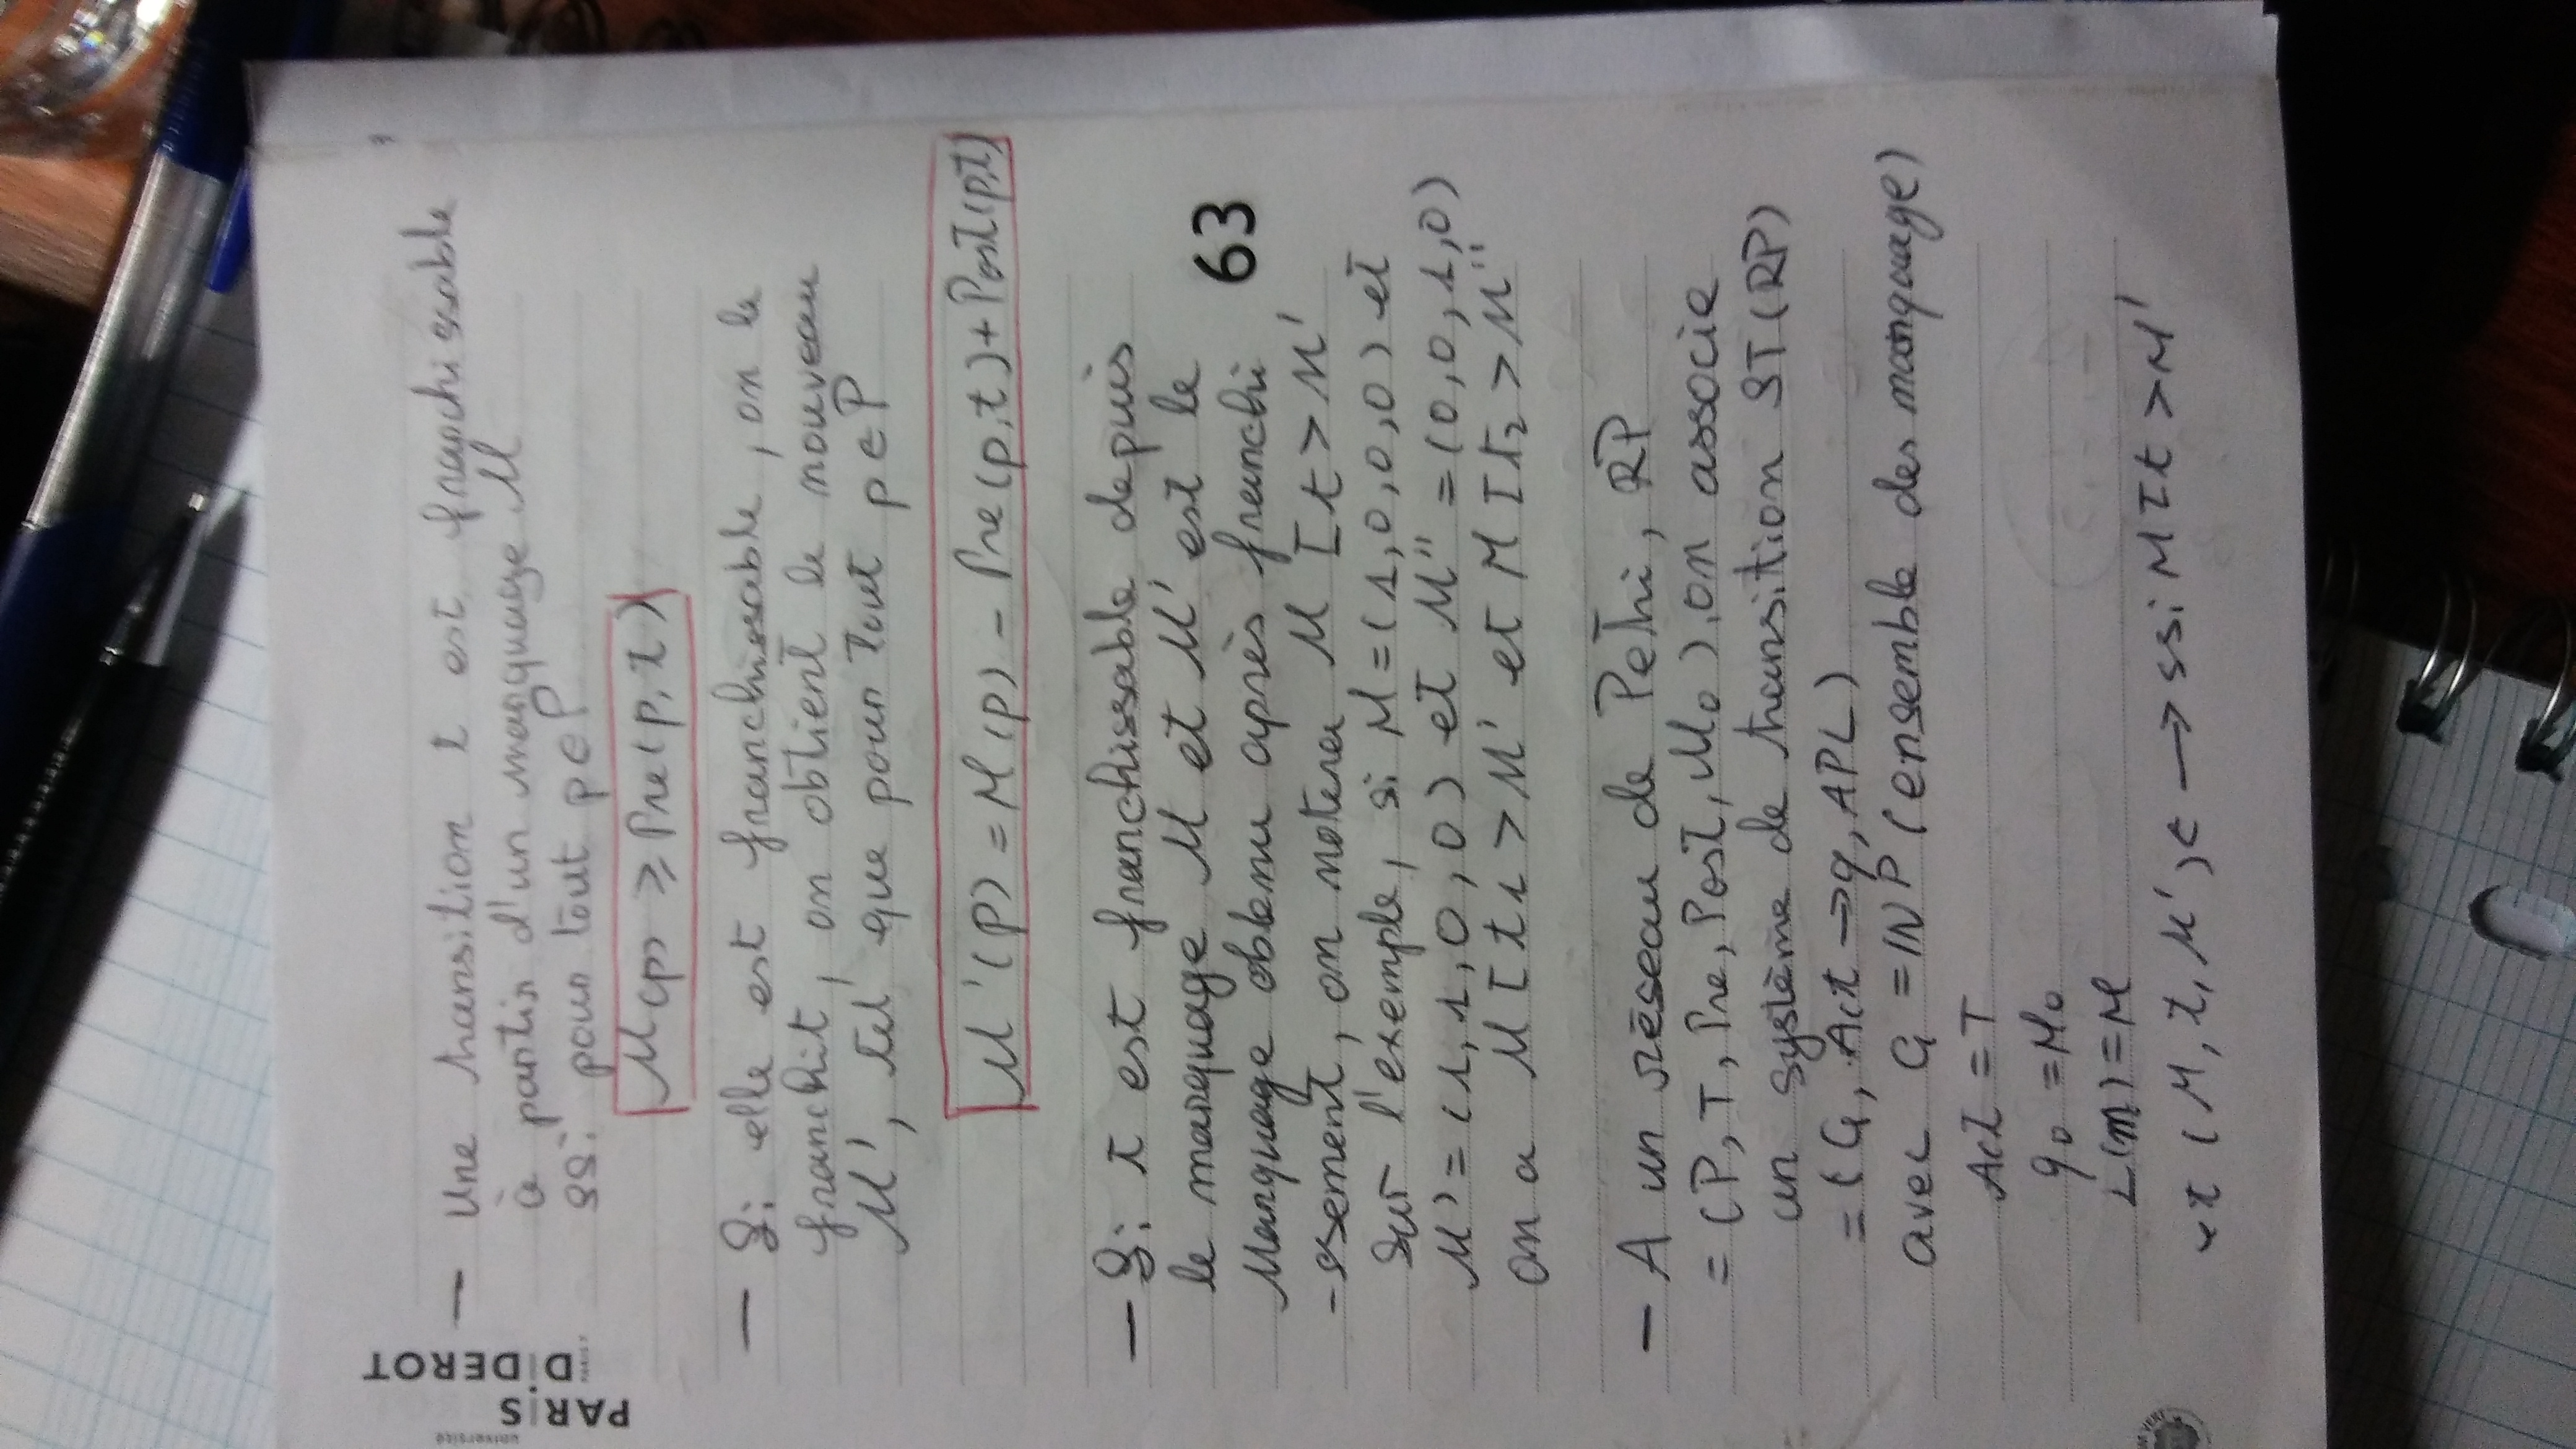 université
PARIS
DIDEROT
PARIS 7
— Une transition t est franchissable
à partir d'un marquage M
ssi pour tout p ∈ P
M(p) ⩾ Pre(p, t)
— Si elle est franchissable, on le
franchit, on obtient le nouveau
M', tel que pour tout p ∈ P
M'(p) = M(p) - Pre(p,t) + Post(p,t)
— Si t est franchissable depuis
le marquage M et M' est le
Marquage obtenu après franchi
-ssement, on notera M [t > M'
63
Sur l'exemple, si M = (1,0,0,0) et
M' = (1,1,0,0) et M'' = (0,0,1,0)
on a M [t1 > M' et M [t2 > M''
— A un réseau de Petri, RP
= (P, T, Pre, Post, M0), on associe
un système de transition ST(RP)
= (G, Act → q, APL)
avec G = INP (ensemble des marquage)
Act = T
q0 = M0
L(m) = M
et (M, t, M') ∈ → ssi M [t > M'